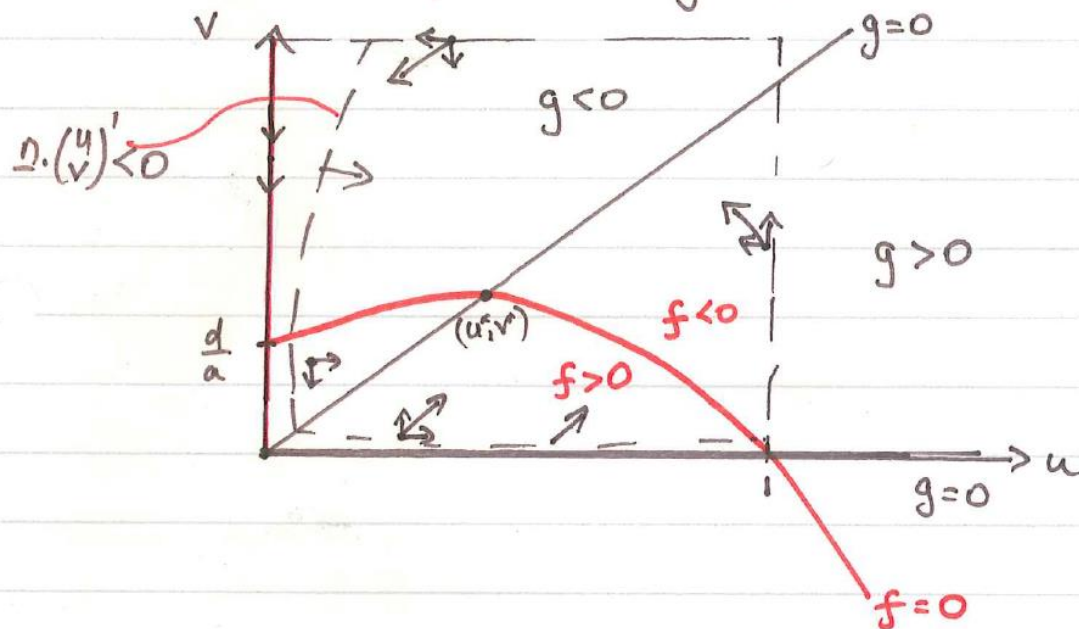 v
g=0
g<0
n·(u v)'<0
g>0
d/a
(u*,v*)
f<0
f>0
u
1
g=0
f=0